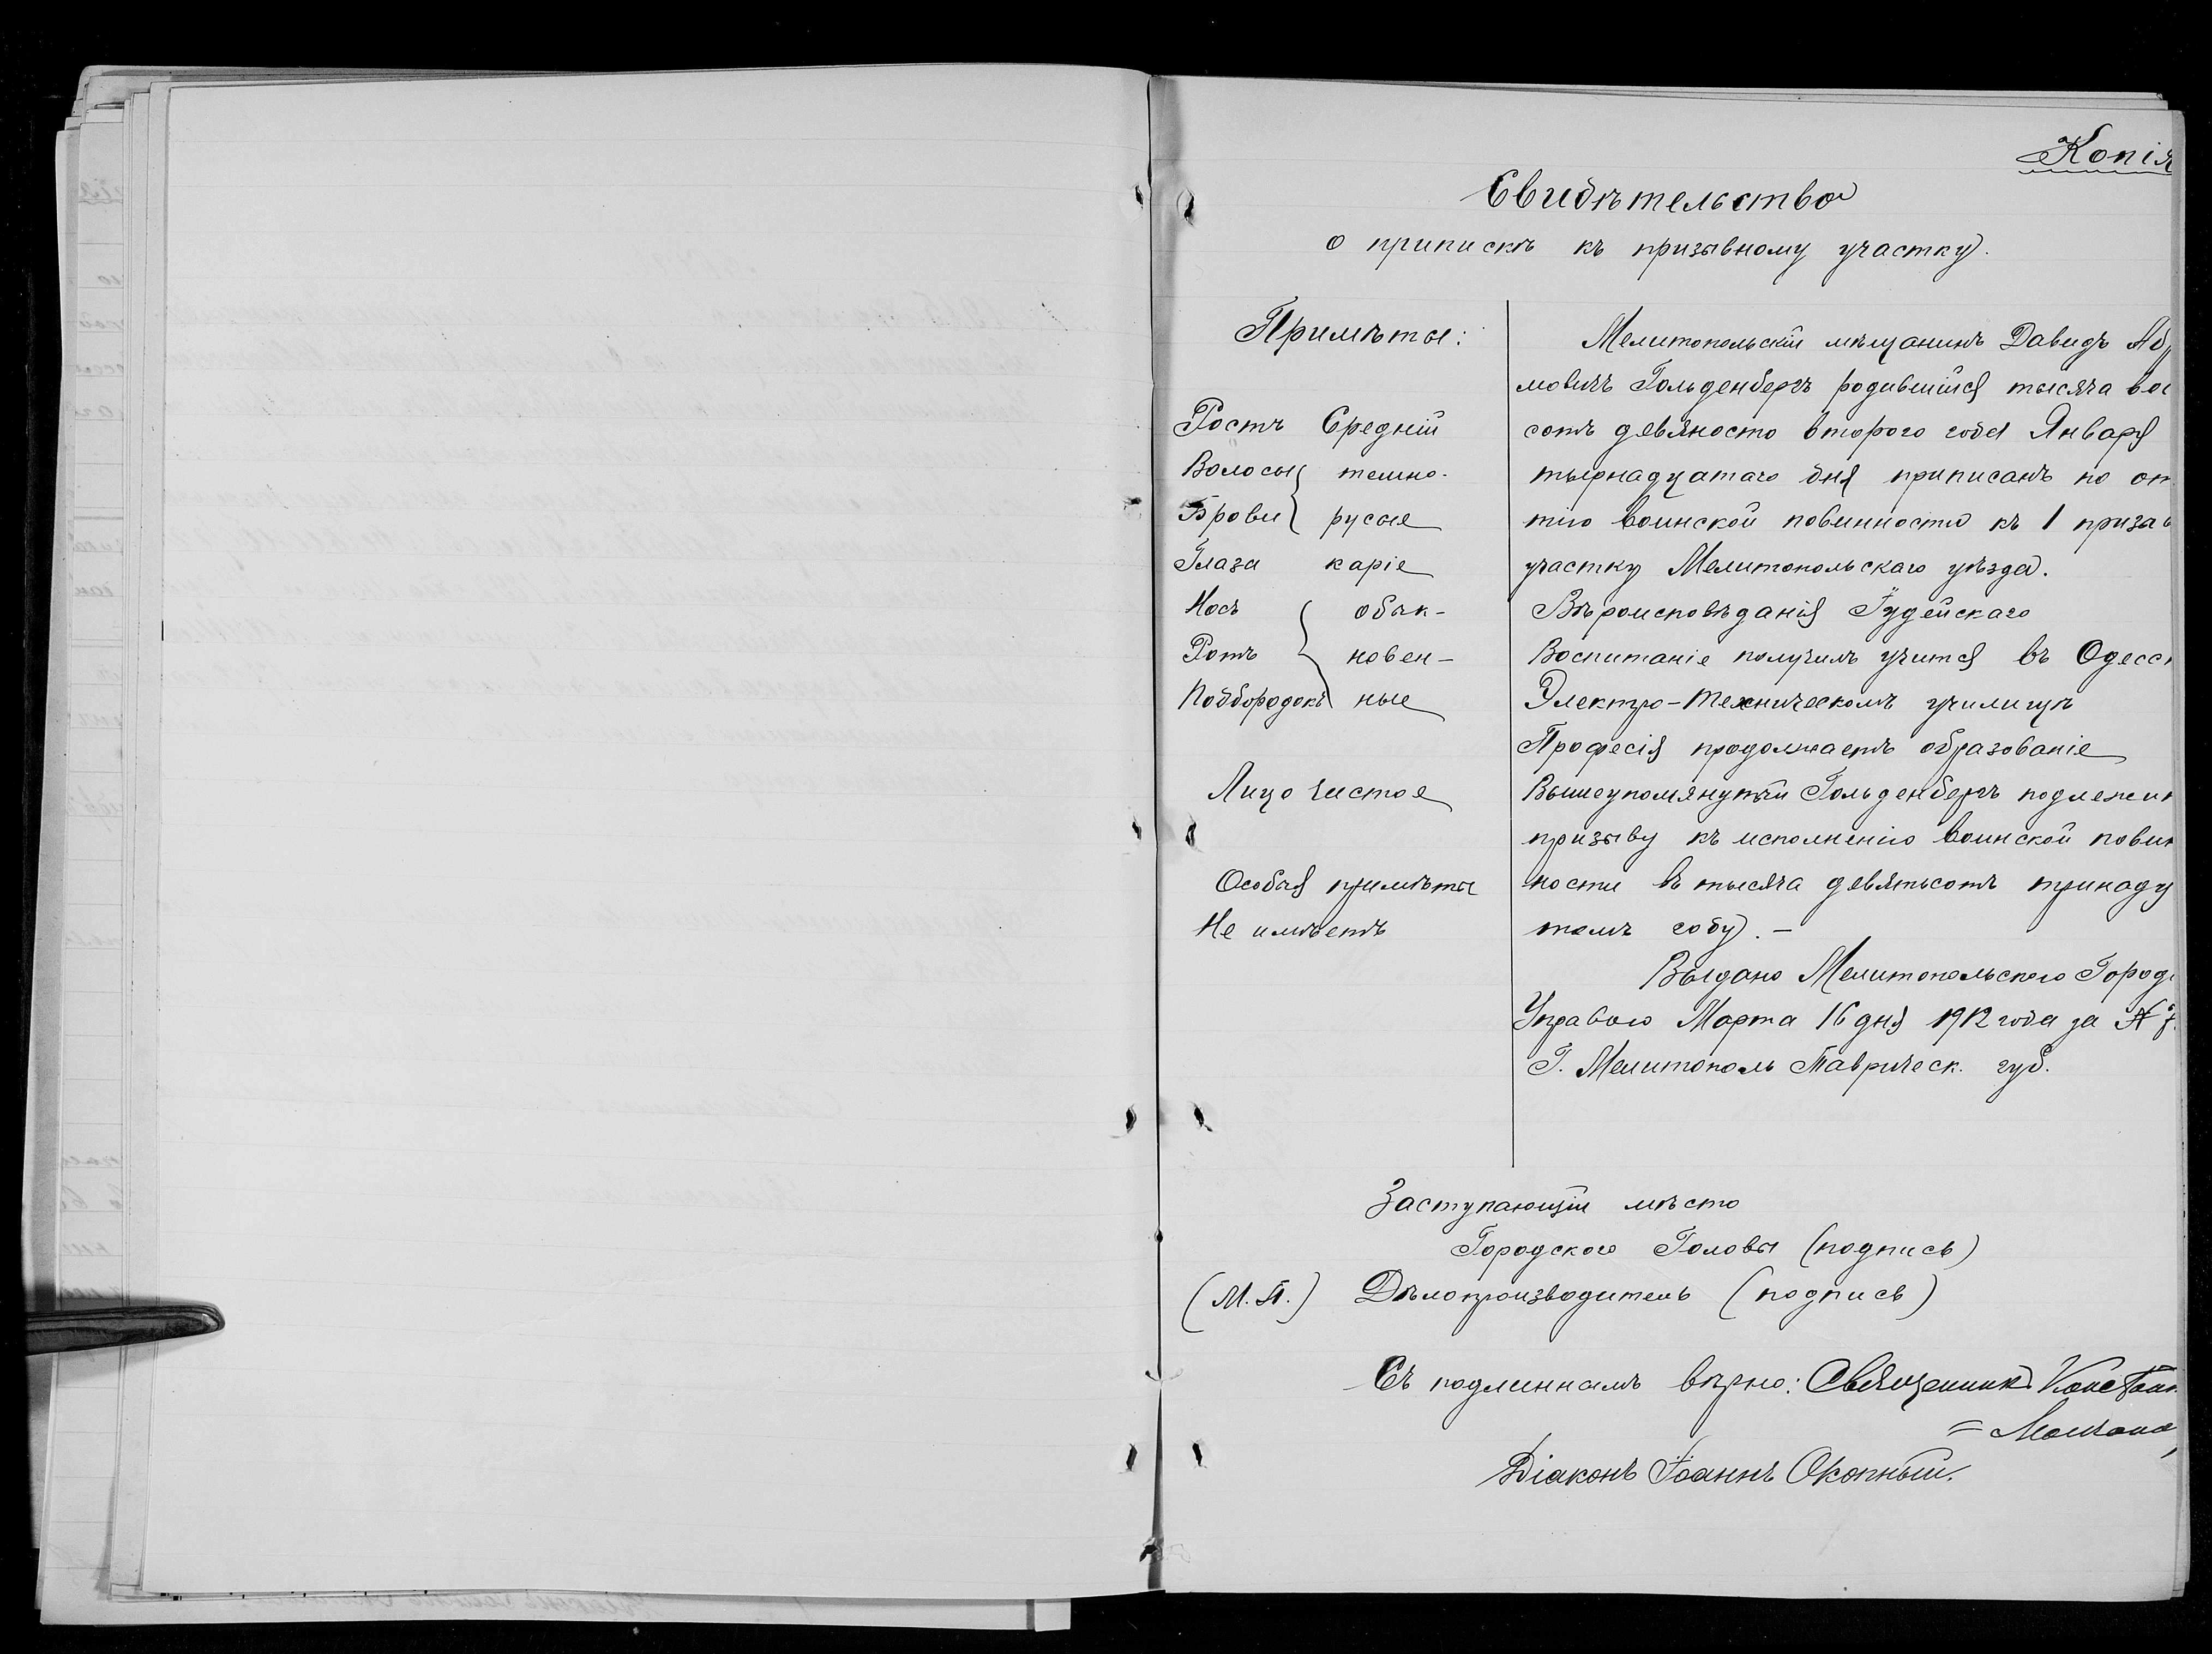 Копія
Свидѣтельство
о припискѣ къ призывному участку.
Примѣты:
Ростъ Средній
Волосы темно-
Брови русые
Глаза каріе
Носъ обык-
Ротъ новен-
Подбородокъ ные
Лицо чистое
Особыя примѣты
Не имѣетъ
Мелитопольскій мѣщанинъ Давидъ Аб
мовичъ Гольденбергъ родившійся тысяча вос
сотъ девяносто второго года Января
тырнадцатаго дня приписанъ по от
тію воинской повинности къ 1 призыв
участку Мелитопольскаго уѣзда.
Вѣроисповѣданія Іудейскаго
Воспитаніе получилъ учится въ Одесс
Электро-техническомъ училищѣ
Професія продолжаетъ образованіе
Вышеупомянутый Гольденбергъ подлежит
призыву къ исполненію воинской повин
ности въ тысяча девятьсотъ тринадц
томъ году. -
Выдано Мелитопольскою Городс
Управою Марта 16 дня 1912 года за №
Г. Мелитополь Таврическ. губ.
Заступающій мѣсто
Городского Головы (подпись)
(М.П.) Дѣлопроизводитель (подпись)
Съ подлиннымъ вѣрно: Священникъ Констан
Діаконъ Іоаннъ Окопный.